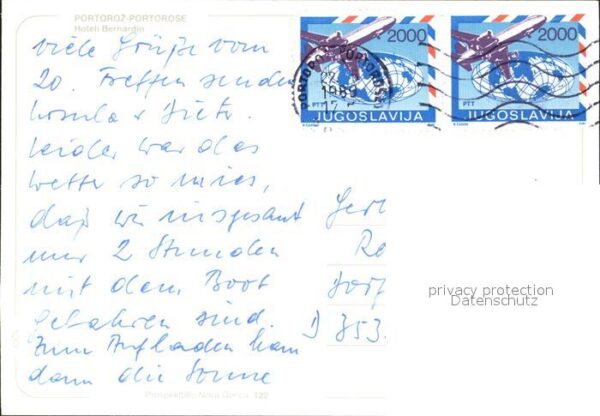 PORTOROŽ-PORTOROSE
Hoteli Bernardin
viele Grüße vom
20. Treffen senden
Ursula + Dietr.
Leider war das
Wetter so mies,
daß wir insgesamt
nur 2 Stunden
mit dem Boot
gefahren sind.
Zum Aufladen kam
dann die Sonne
2000
PTT
JUGOSLAVIJA
2000
PTT
JUGOSLAVIJA
PORTOROŽ PORTOROSE
1989
Gert
Ro
Dorf
D 353
privacy protection
Datenschutz